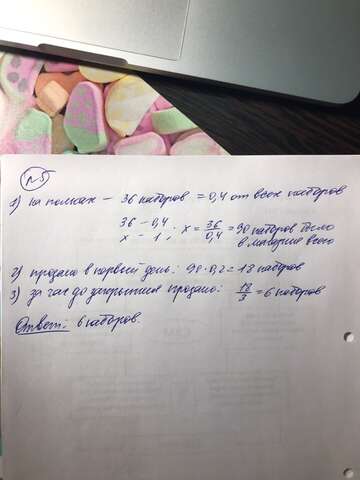 №5
1) на полках – 36 наборов = 0,4 от всех наборов
36 – 0,4
x – 1, x = 36/0,4 = 90 наборов было
в магазине всего
2) продано в первый день: 90 · 0,2 = 18 наборов
3) за час до закрытия продано: 18/3 = 6 наборов
Ответ: 6 наборов.